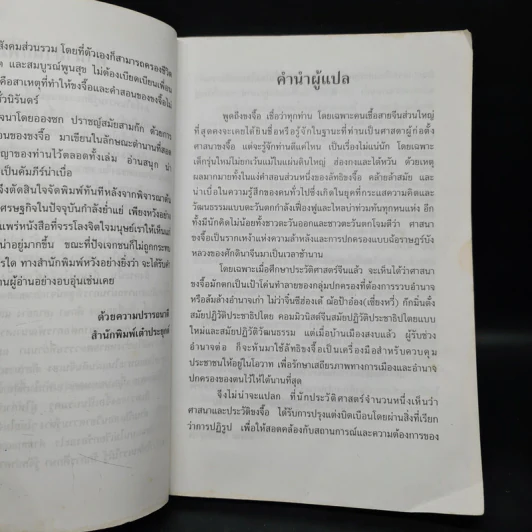 สังคมส่วนรวม โดยที่ตัวเองก็สามารถครองชีวิต
และสมบูรณ์พูนสุข ไม่ต้องเบียดเบียนเพื่อน
คือสาเหตุที่ทำให้ขงจื๊อและคำสอนของขงจื๊อไม่
ชั่วนิรันดร์
โดยองชก ปราชญ์สมัยสามก๊ก ด้วยการ
สอนของขงจื๊อ มาเขียนในลักษณะตำนานที่สอด
ของท่านไว้ตลอดทั้งเล่ม อ่านสนุก น่า
เป็นคัมภีร์น่าเบื่อ
จึงตัดสินใจจัดพิมพ์ทันทีหลังจากพิจารณาต้น
เศรษฐกิจในปัจจุบันกำลังย่ำแย่ เพียงหวังอย่าง
แพร่หนังสือที่จรรโลงจิตใจมนุษย์เราให้เห็นแก่
น่าอยู่มากขึ้น ขณะที่ปัจเจกชนก็ไม่ถูกกระทบ
ใด ทางสำนักพิมพ์หวังอย่างยิ่งว่า จะได้รับคำ
ผู้อ่านอย่างอบอุ่นเช่นเคย
ด้วยความปรารถนาดี
สำนักพิมพ์เต๋าประยุกต์
คำนำผู้แปล
พูดถึงขงจื๊อ เชื่อว่าทุกท่าน โดยเฉพาะคนเชื้อสายจีนส่วนใหญ่
ที่สุดคงจะเคยได้ยินชื่อหรือรู้จักในฐานะที่ท่านเป็นศาสดาผู้ก่อตั้ง
ศาสนาขงจื๊อ แต่จะรู้จักท่านดีแค่ไหน เป็นเรื่องไม่แน่นัก โดยเฉพาะ
เด็กรุ่นใหม่ไม่ยกเว้นแม้ในแผ่นดินใหญ่ ฮ่องกงและไต้หวัน ด้วยเหตุ
ผลมากมายทั้งในแง่คำสอนส่วนหนึ่งของลัทธิขงจื๊อ คล้ายล้าสมัย และ
น่าเบื่อในความรู้สึกของคนทั่วไปซึ่งเกิดในยุคที่กระแสความคิดและ
วัฒนธรรมแบบตะวันตกกำลังเฟื่องฟูและไหลบ่าท่วมท้นทุกหนแห่ง อีก
ทั้งมีนักคิดไม่น้อยทั้งชาวตะวันออกและชาวตะวันตกโจมตีว่า ศาสนา
ขงจื๊อเป็นรากเหง้าแห่งความล้าหลังและการปกครองแบบฉ้อราษฎร์บัง
หลวงของศักดินาจีนมาเป็นเวลาช้านาน
โดยเฉพาะเมื่อศึกษาประวัติศาสตร์จีนแล้ว จะเห็นได้ว่าศาสนา
ขงจื๊อมักตกเป็นเป้าโค่นทำลายของกลุ่มปกครองที่ต้องการรวบอำนาจ
หรือล้มล้างอำนาจเก่า ไม่ว่าจิ๋นซีฮ่องเต้ ฌ้อป้าอ๋อง(เซี่ยงหวี่) ก๊กมิ่นตั๋ง
สมัยปฏิวัติประชาธิปไตย คอมมิวนิสต์จีนสมัยปฏิวัติประชาธิปไตยแบบ
ใหม่และสมัยปฏิวัติวัฒนธรรม แต่เมื่อบ้านเมืองสงบแล้ว ผู้รับช่วง
อำนาจต่อ ก็จะหันมาใช้ลัทธิขงจื๊อเป็นเครื่องมือสำหรับควบคุม
ประชาชนให้อยู่ในโอวาท เพื่อรักษาเสถียรภาพทางการเมืองและอำนาจ
ปกครองของตนไว้ให้ได้นานที่สุด
จึงไม่น่าจะแปลก ที่นักประวัติศาสตร์จำนวนหนึ่งเห็นว่า
ศาสนาและประวัติขงจื๊อ ได้รับการปรุงแต่งบิดเบือนโดยผ่านสิ่งที่เรียก
ว่าการปฏิรูป เพื่อให้สอดคล้องกับสถานการณ์และความต้องการของ